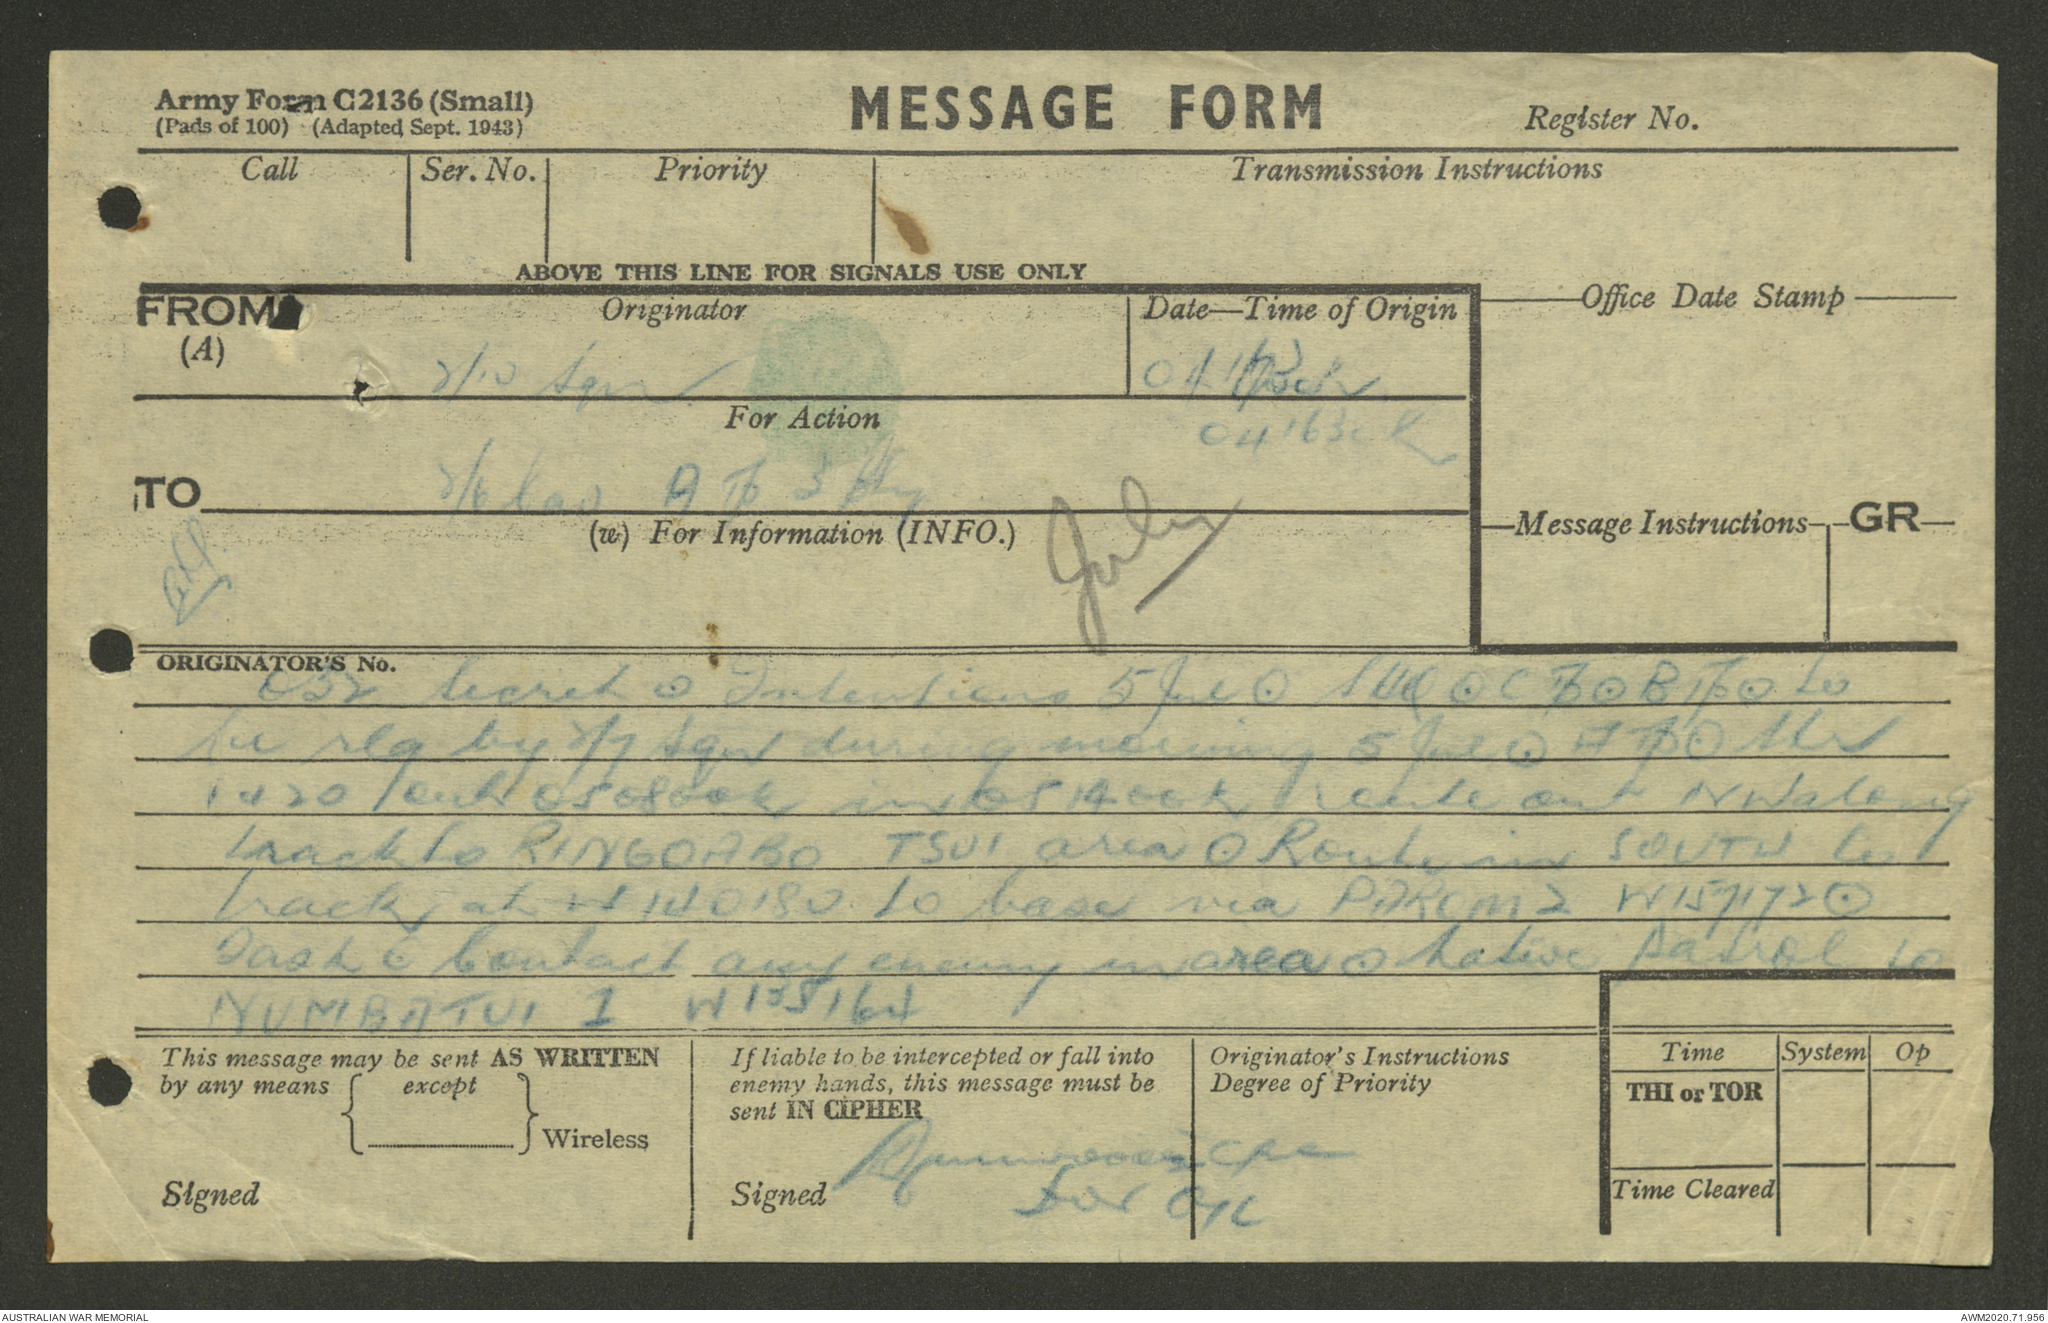 Army Form C2136 (Small)
(Pads of 100) (Adapted Sept. 1943)
MESSAGE FORM
Register No.
Call Ser. No. Priority Transmission Instructions
ABOVE THIS LINE FOR SIGNALS USE ONLY
FROM
(A)
Originator
Date—Time of Origin
Office Date Stamp
2/10 Sqn
For Action
041630K
TO
2/6 A Tp
(w) For Information (INFO.)
July
Message Instructions GR
ORIGINATOR'S No.
Secret ⊙ Intentions 5 Jul ⊙ SHQ ⊙ C Tp ⊙ B Tp ⊙ to
be by Sqn during morning 5 Jul ⊙ A Tp ⊙
1 out 050800K in 051400K route out NW along
track to RINGOABO TSUI area ⊙ Route in SOUTH to
track at 140180 to base via PAROM 2 W157172 ⊙
Task contact any enemy in area ⊙ Native patrol to
NUMBATUI 1 W135164
This message may be sent AS WRITTEN
by any means { except } Wireless
Signed
If liable to be intercepted or fall into
enemy hands, this message must be
sent IN CIPHER
Signed
for
Originator's Instructions
Degree of Priority
Time System Op
THI or TOR
Time Cleared
AUSTRALIAN WAR MEMORIAL
AWM2020.71.956